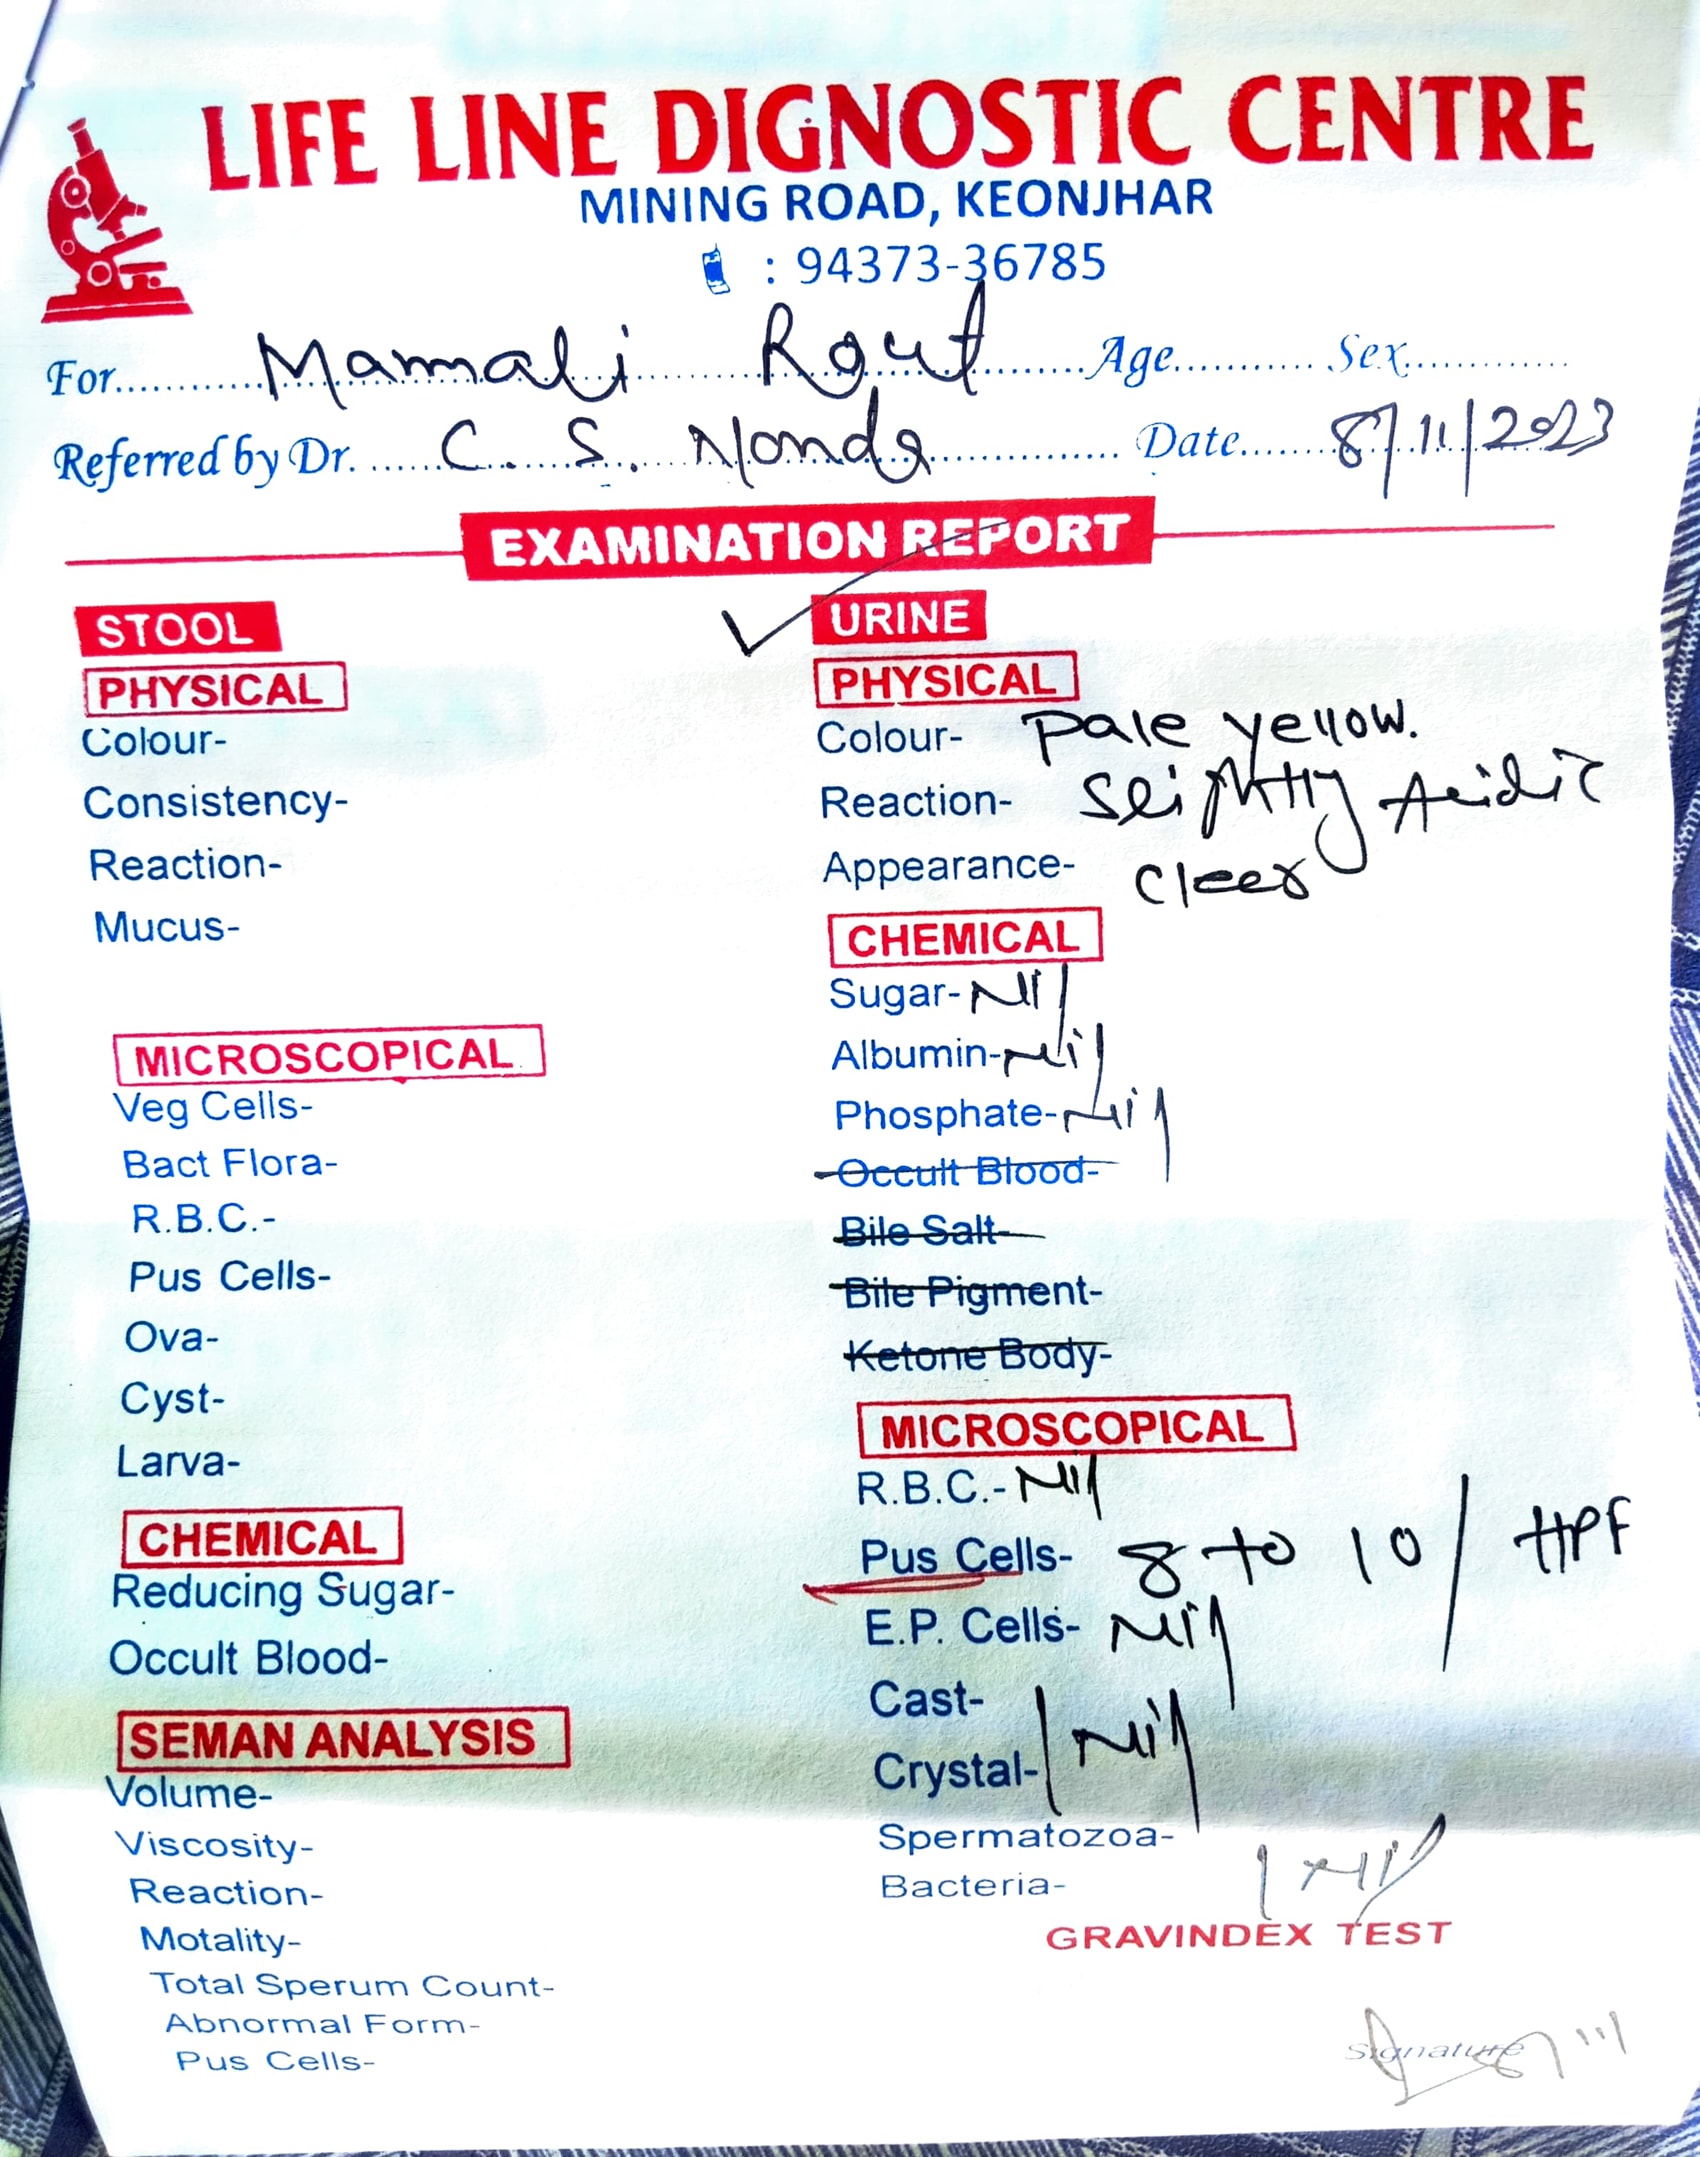 LIFE LINE DIGNOSTIC CENTRE
MINING ROAD, KEONJHAR
: 94373-36785
For............Mamali Rout............Age............Sex............
Referred by Dr. ......C. S. Nanda............Date.......8/11/2023
EXAMINATION REPORT
STOOL
PHYSICAL
Colour-
Consistency-
Reaction-
Mucus-
MICROSCOPICAL
Veg Cells-
Bact Flora-
R.B.C.-
Pus Cells-
Ova-
Cyst-
Larva-
CHEMICAL
Reducing Sugar-
Occult Blood-
SEMAN ANALYSIS
Volume-
Viscosity-
Reaction-
Motality-
Total Sperum Count-
Abnormal Form-
Pus Cells-
URINE
PHYSICAL
Colour- Pale yellow.
Reaction- Slightly Acidic
Appearance- Cleer
CHEMICAL
Sugar- Nil
Albumin- Nil
Phosphate- Nil
Occult Blood-
Bile Salt-
Bile Pigment-
Ketone Body-
MICROSCOPICAL
R.B.C.- Nil
Pus Cells- 8 to 10 / HPF
E.P. Cells- Nil
Cast-
Crystal- Nil
Spermatozoa-
Bacteria- Nil
GRAVINDEX TEST
Signature